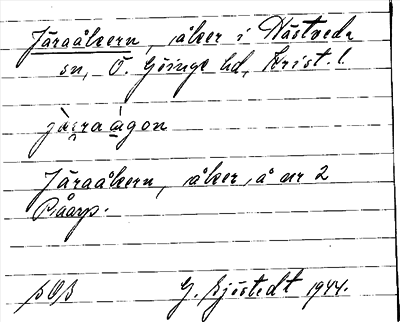 Järaåkern, åker i Hästveda
sn, Ö. Göinge hd, Krist. l.
jæ̀raágon
Järaåkern, åker å nr 2
Påarp.
G. Sjöstedt 1944.